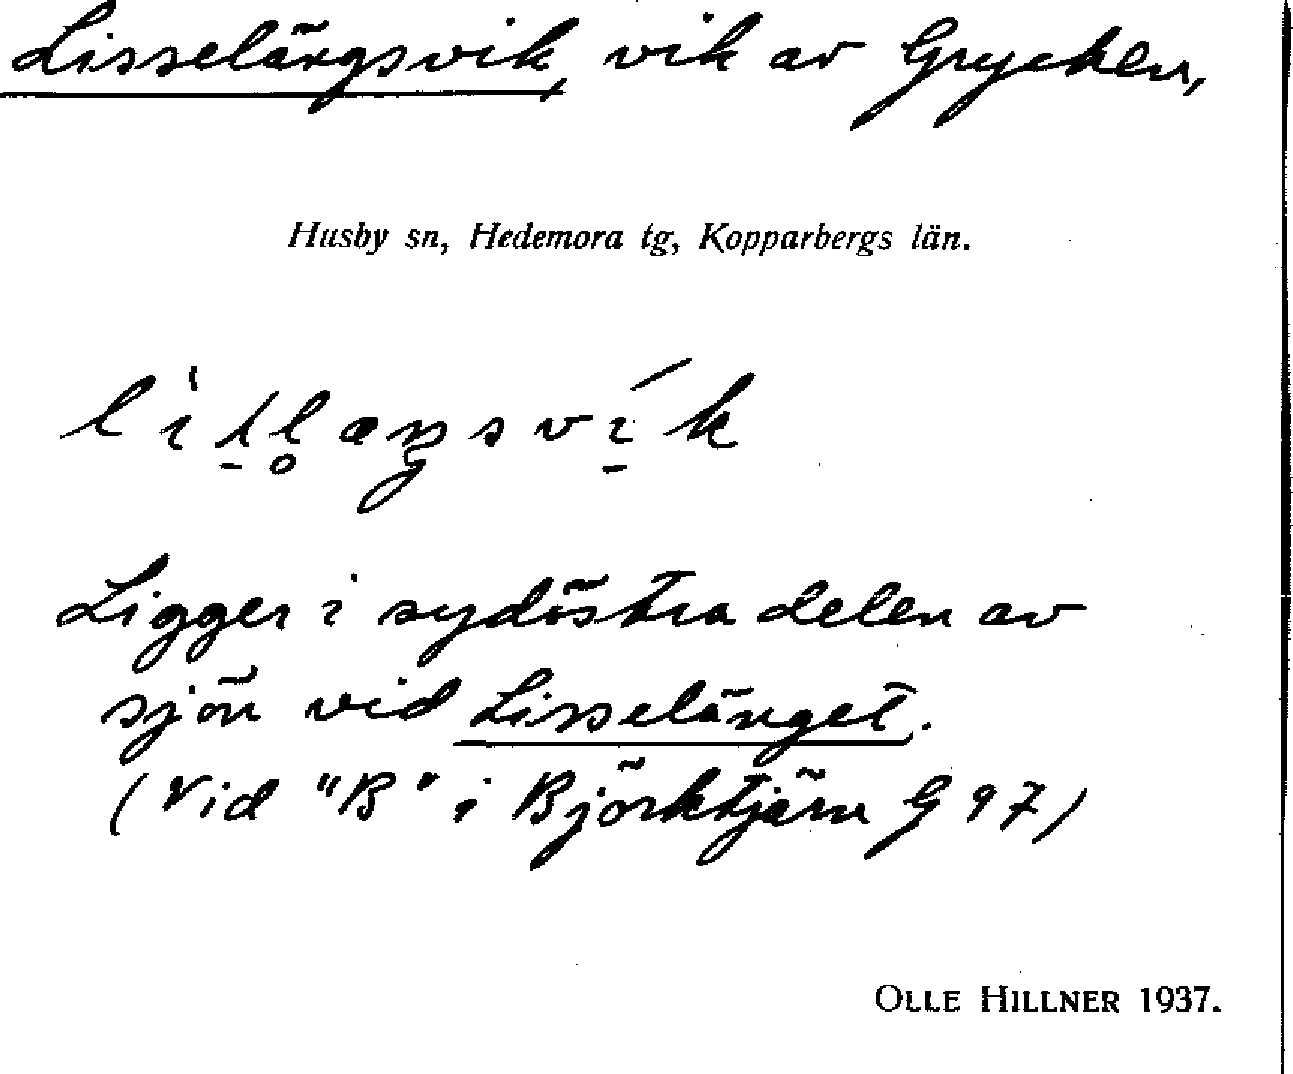 Lisselängsvik, vik av Grycken,
Husby sn, Hedemora tg, Kopparbergs län.
Ligger i sydöstra delen av
sjön vid Lisselänget.
(Vid "B" i Björktjärn G 97)
OLLE HILLNER 1937.